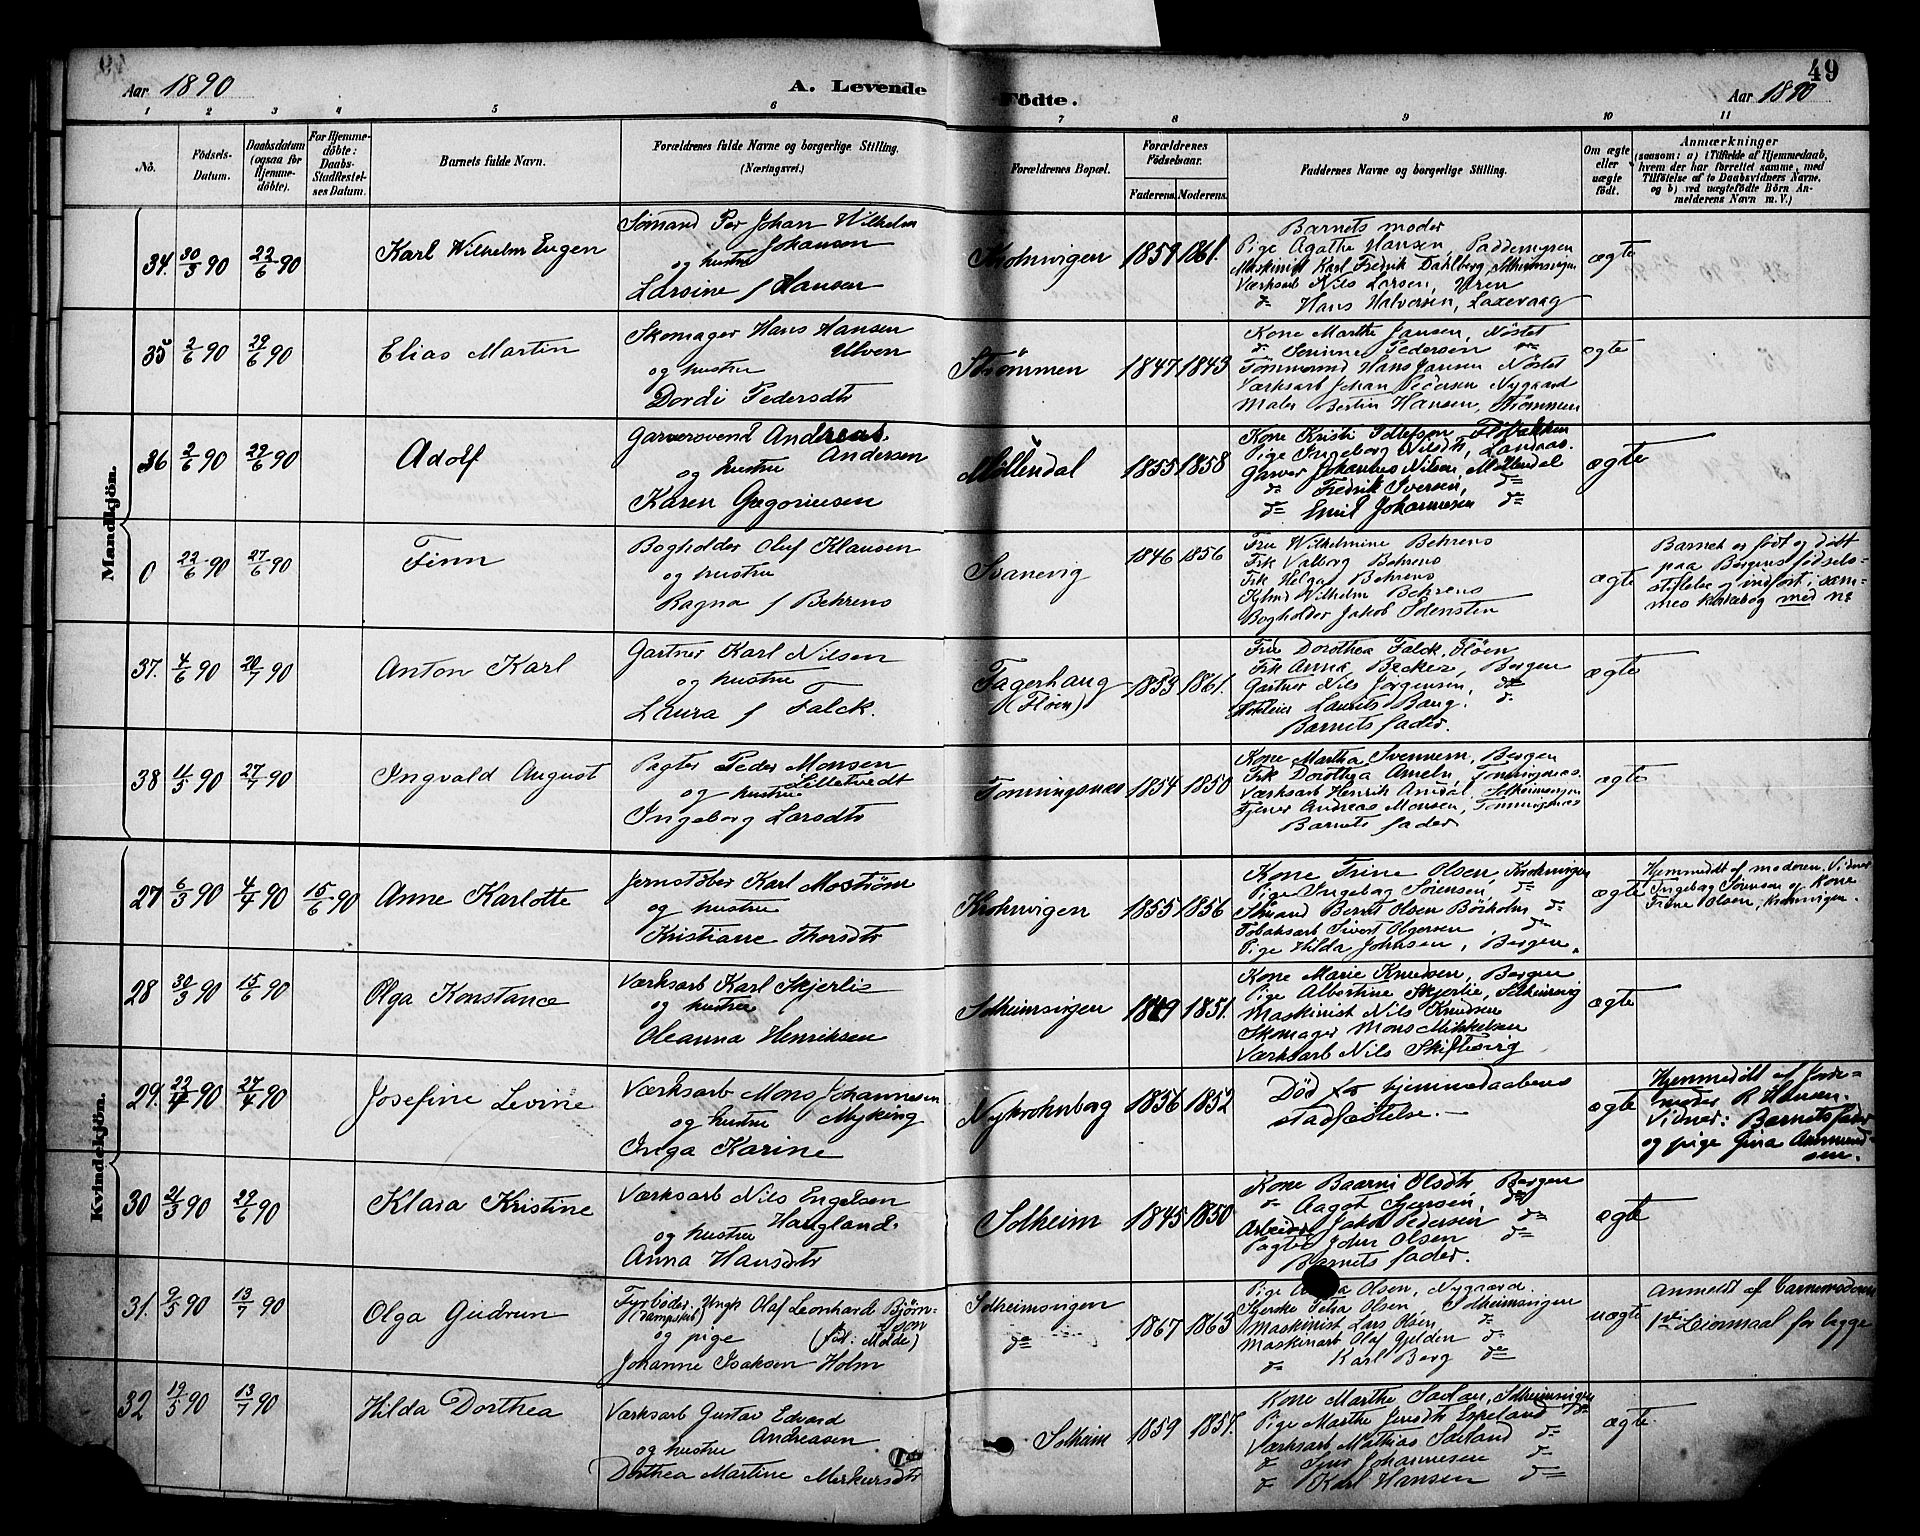 49
Aar 1890
A. Levende Födte.
Aar 1890
1 2 3 4 5 6 7 8 9 10 11
No.
Födsels-Datum.
Daabsdatum (ogsaa for Hjemme-döbte).
For Hjemme-döbte: Daabs-Stadfæstel-ses Datum.
Barnets fulde Navn.
Forældrenes fulde Navne og borgerlige Stilling. (Næringsvei.)
Forældrenes Bopæl.
Forældrenes Födselsaar.
Faderens. Moderens.
Faddernes Navne og borgerlige Stilling.
Om ægte eller uægte födt.
Anmærkninger
(saasom: a) i Tilfælde af Hjemmedaab, hvem der har forrettet samme, med Tilföielse af to Daabsvidners Navne, og b) ved uægtefödte Börn An-melderens Navn m. V.)
Mandkjön.
34. 30/3 90 22/6 90 Karl Wilhelm Eugen
Sömand Per Johan Wilhelm
Johansen
og hustru
Larsine f Hansen
Krohnvigen 1859 1861.
Barnets moder
Pige Agathe Hansen, Paddemyren
Maskinist Karl Fredrik Dahlberg, Solheimsvigen
Værksarb Nils Larsen, Uren
do Hans Halvorsen, Laxevaag
ægte
35 2/6 90 29/6 90 Elias Martin
Skomager Hans Hansen
Ulven
og hustru
Dordi Pedersdtr
Strömmen 1847 1843
Kone Marthe Jansen, Nöstet
do Serinne Pedersen do
Tömmermd Hans Jansen Nöstet
Værksarb Johan Pedersen Nygaard
Maler Bertin Hansen, Strömmen
ægte
36 2/6 90 29/6 90 Adolf
Garversvend Andreas
Andersen
og hustru
Karen Gregoriusen
Möllendal 1855 1858
Kone Kristi
Pige Ingeborg Nilsdtr, Landaas.
Garver Johannes Nilsen, Möllendal
do Fredrik Iversen, do
do Emil Johannesen do
ægte
0 22/6 90 27/6 90 Finn
Bogholder Oluf Klausen
og hustru
Ragna f Behrens
Svanevig 1846 1856
Fru Wilhelmine Behrens
Frk Valborg Behrens
Frk Helga Behrens
Kjbmd Wilhelm Behrens
Bogholder Jakob
ægte
Barnet er födt og döbt
paa Bergens födsels-
stiftelse og indfört i sam-
mes kirkebog med No
37. 4/6 90 20/7 90 Anton Karl
Gartner Karl Nilsen
og hustru
Laura f Falck.
Fagerhaug
(Flöen)
1853 1861.
Fru Dorothea Falck, Flöen
Frk Anna Becker, Bergen
Gartner Nils Jörgensen, do
Laurits Baug. do
Barnets fader.
ægte
38 11/5 90 27/7 90 Ingvald August
Pagter Peder Monsen
Lilletvedt
og hustru
Ingeborg Larsdtr
Tonningsnes 1854 1850
Kone Martha Svennem, Bergen
Frk Dorothea Ameln, Tonningsnes.
Værksarb Henrik Amdal, Solheimsvigen
Tjener Andreas Monsen, Tonningsnes
Barnets fader
ægte
Kvindekjön.
27 6/3 90 4/4 90 15/6 90 Anne Karlotte
Jernstöber Karl Moström
og hustru
Kristiane Thorsdtr
Krohnvigen 1855 1856
Kone Trine Olsen, Krohnvigen
Pige Ingebag Sörensen, do
Sömand Bernts Olsen Börkholm do
Tobaksarb Sivert Olgersen, do
Pige Hilda Johnsen, Bergen.
ægte
Hjemmedöbt af moderen. Vidner
Ingebag Sörensen og Kone
Trine Olsen, Krohnvigen.
28 30/3 90 15/6 90 Olga Konstance
Værksarb Karl Skjerlie
og hustru
Oleanna Henriksen
Solheimsvigen 1849 1851.
Kone Marie Knudsen, Bergen
Pige Albertine Skjerlie, Solheimsvig
Maskinist Nils Knudsen
Skomager Mons Mikkelsen
Værksarb Nils Skiftesvig
ægte
29. 22/4 90 27/4 90 Josefine Levine
Værksarb Mons Johannesen
og hustru Myking
Inga Karine
Nykrohnborg 1856 1852
Död för hjemmedaabens
stadfæstelse.-
ægte
Hjemmedöbt af Jorde-
moder R Hansen.
Vidner: Barnets fader
og pige Gina Ammund-
sen.
30 21/3 90 29/6 90 Klara Kristine
Værksarb Nils Engelsen
Haugland.
og hustru
Anna Hansdtr
Solheim 1845 1850
Kone Baarni Olsdtr Bergen
do Aagot do
Arbeider Jakob Pedersen do
Pagter John Olsen do
Barnets fader.
ægte
31. 9/5 90 13/7 90 Olga Gudrun
Fyrböder, Ungk Olaf Leonhard Björn-
(Dampskib) son
og pige (föd: Molde)
Johanne Isaksen Holm
Solheimsvigen
do
1867 1863
Pige Olsen, Nygaard.
Petra Olsen, Solheimsvigen
Maskinist Lars Olsen, do
Maskinarb Olaf Gjelden do
do Karl Berg do
uægte
Anmeldt af barnemoderen
1ste Leiermaal for begge
32 19/5 90 13/7 90 Hilda Dorthea
Værksarb Gustav Edvard
Andreasen
og hustru
Dorthea Martine Merkursdtr
Solheim 1859 1857.
Kone Marthe Sælan, Solheimsvigen
Pige Marthe Jensdtr Espeland do
Værksarb Mathias Sæland do
do Sjur Johannesen do
do Karl Hansen do
ægte.